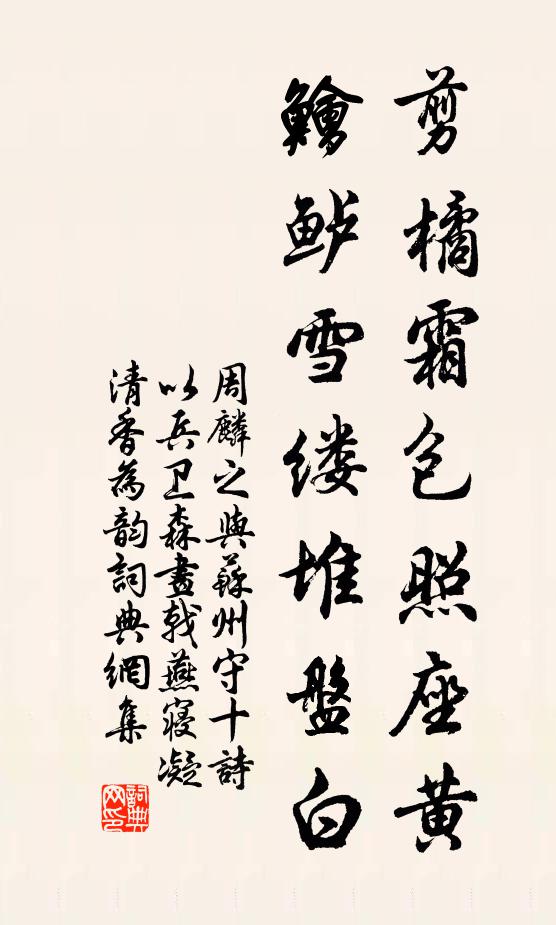 剪橘霜包照座黄
鱠鲈雪缕堆盤白
周麟之與蘇州守十詩
以兵卫森畫戟燕寝凝
清香為韵詞典網集
詞典网印